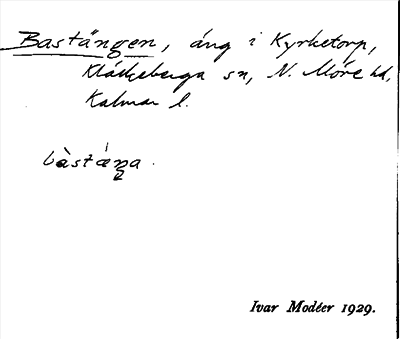 Bastängen, äng i Kyrketorp,
Kläckeberga sn, N. Möre hd,
Kalmar l.
bàstáŋa.
Ivar Modéer 1929.